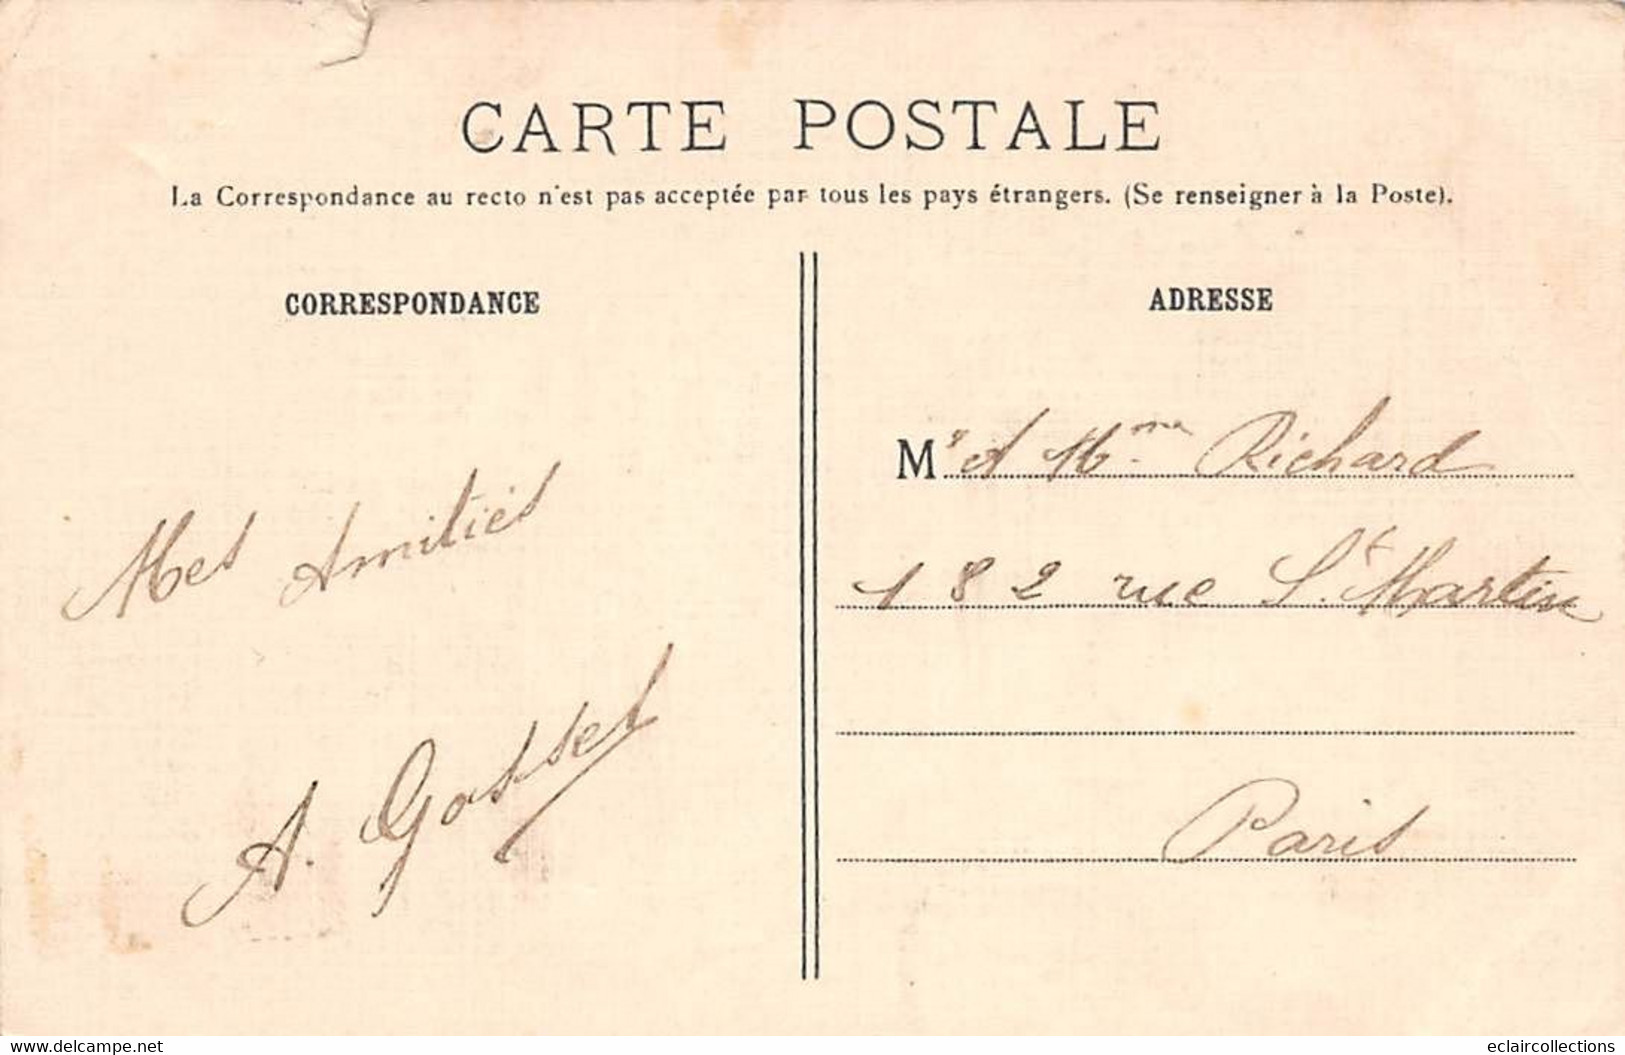 CARTE POSTALE
La Correspondance au recto n'est pas acceptée par tous les pays étrangers. (Se renseigner à la Poste).
CORRESPONDANCE
Mes Amitiés
A. Gosset
ADRESSE
Mr et Mme Richard
182 rue St. Martin
Paris
www.delcampe.net
eclaircollections